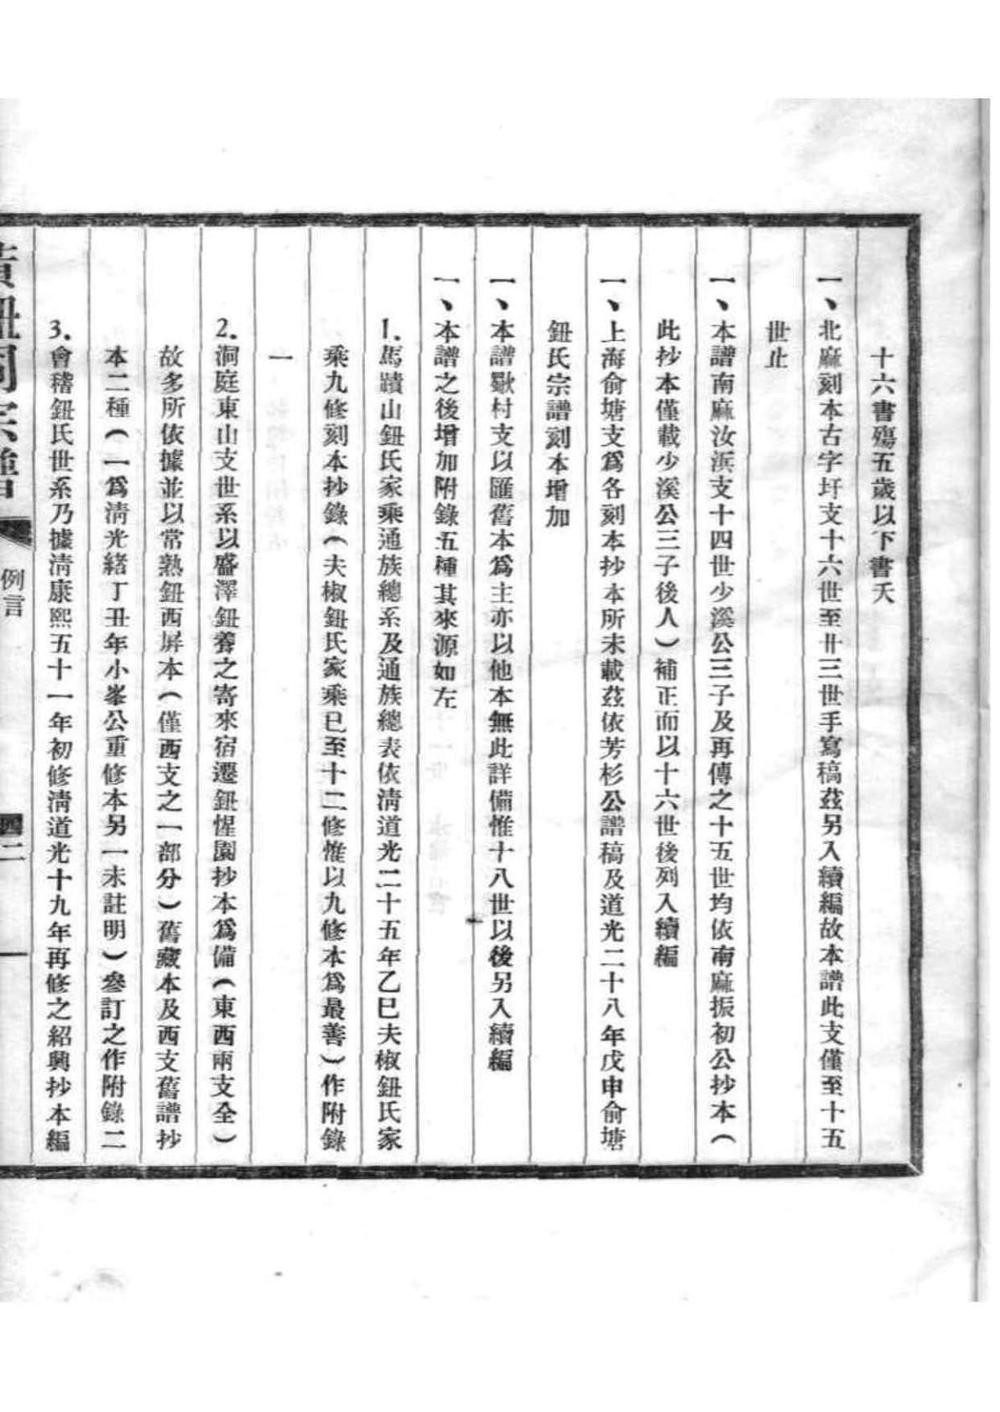 十六書殤五歲以下書夭
一、北麻刻本古字圩支十六世至卅三世手寫稿茲另入續編故本譜此支僅至十五
世止
一、本譜南麻汝浜支十四世少溪公三子及再傳之十五世均依南麻振初公抄本（
此抄本僅載少溪公三子後人）補正而以十六世後列入續編
一、上海俞塘支爲各刻本抄本所未載茲依芳杉公譜稿及道光二十八年戊申俞塘
鈕氏宗譜刻本增加
一、本譜歇村支以匯舊本爲主亦以他本無此詳備惟十八世以後另入續編
一、本譜之後增加附錄五種其來源如左
1.馬蹟山鈕氏家乘通族總系及通族總表依清道光二十五年乙巳夫椒鈕氏家
乘九修刻本抄錄（夫椒鈕氏家乘已至十二修惟以九修本爲最善）作附錄
一
2.洞庭東山支世系以盛澤鈕養之寄來宿遷鈕惺園抄本爲備（東西兩支全）
故多所依據並以常熟鈕西屏本（僅西支之一部分）舊藏本及西支舊譜抄
本二種（一爲清光緒丁丑年小峯公重修本另一未註明）參訂之作附錄二
3.會稽鈕氏世系乃據清康熙五十一年初修清道光十九年再修之紹興抄本編
例言